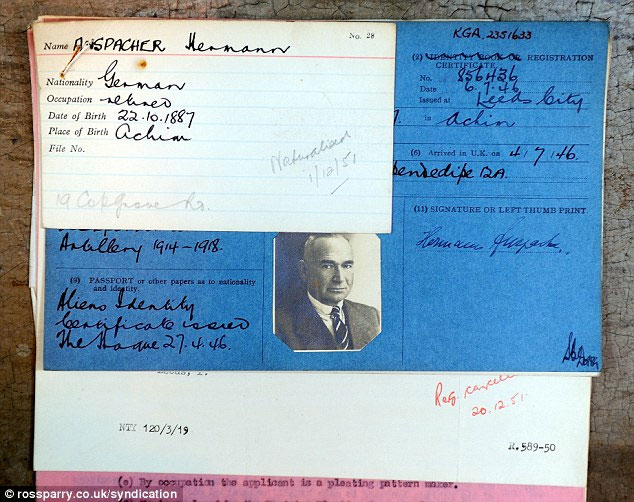 Name AUSPACHER Hermann
No. 28
Nationality German
Occupation retired
Date of Birth 22.10.1887
Place of Birth Achim
File No.
Naturalised
1/12/51
19 Copgrove Rd.
KGA. 2351633
(2) IDENTITY BOOK OR REGISTRATION
CERTIFICATE
No. 856436
Date 6.7.46
Issued at Leeds City
in Achim
(6) Arrived in U.K. on 4/7/46.
(11) SIGNATURE OR LEFT THUMB PRINT
Hermann
Artillery 1914-1918.
(9) PASSPORT or other papers as to nationality
and identity.
Aliens Identity
Certificate issued
The Hague 27.4.46.
Reg.
20.12.51.
NTY 120/3/19
R.589-50
(e) By occupation the applicant is a pleating pattern maker.
© rossparry.co.uk/syndication